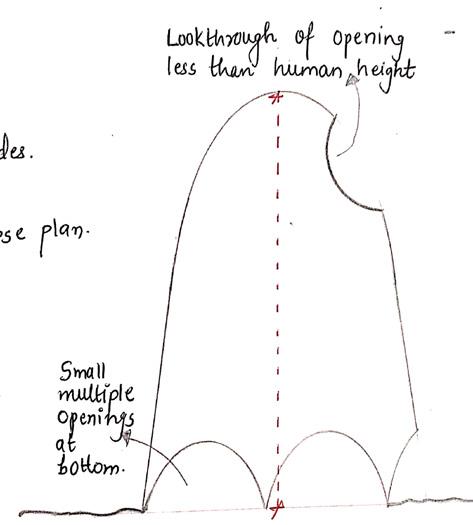 Lookthrough of opening
less than human height
des.
se plan.
Small
multiple
openings
at
bottom.